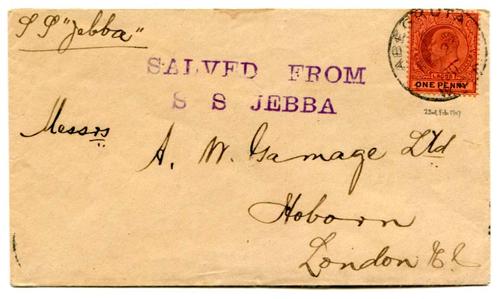 S S "Jebba"
SALVED FROM
S S JEBBA
ABEOKUTA
LAGOS
ONE PENNY
23rd Feb 1907
Messrs
A. W. Gamage Ltd
Hoborn
London E.C.